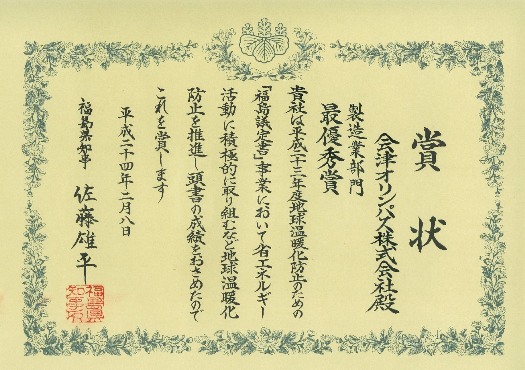 賞状
会津オリンパス株式会社殿
製造業部門
最優秀賞
貴社は平成二十三年度地球温暖化防止のための
「福島議定書」事業において省エネルギー
活動に積極的に取り組むなど地球温暖化
防止を推進し頭書の成績をおさめたので
これを賞します
平成二十四年二月八日
福島県知事 佐藤雄平
福島県
知事之